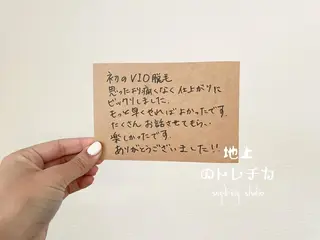 初のVIO脱毛
思ったより痛くなく仕上がりに
ビックリしました。
もっと早くやればよかったです。
たくさんお話させてもらい
楽しかったです。
ありがとうございました!!
地上
のトレチカ